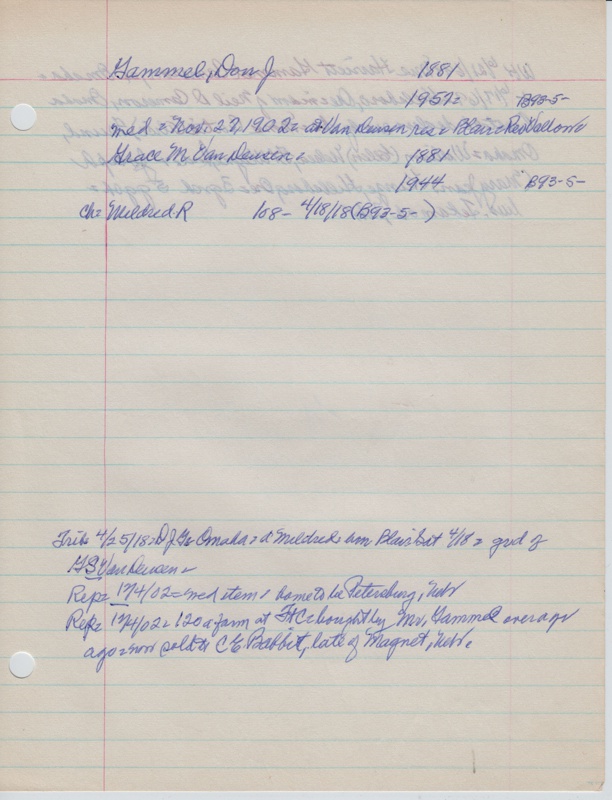 Gammel, Don J 1881
1957= B93-5-
med = Nov. 27, 1902 = at Van Deusen res = Blair Rev
Grace M Van Deusen = 1881
1944 B93-5-
Ch= Mildred R 108- 4/18/18 (B93-5- )
Trib 4/25/18= D J G= Omaha = d Mildred bur Blair Cet 4/18 = grd of
G S Van Deusen =
Rep= 12/4/02 = med item = home to be Petersburg, Neb
Rep= 12/4/02 = 120 a farm at Ft C bought by Mr. Gammel over a yr
ago = now sold to C E Babbit, late of Magnet, Neb.